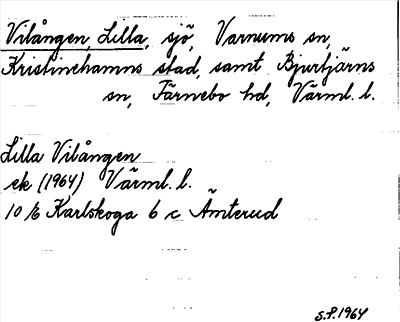 Vilången, Lilla, sjö, Varnums sn,
Kristinehamns stad, samt Bjurtjärns
sn, Färnebo hd, Värml. l.
Lilla Vilången
ek (1964) Värml. l.
10 E Karlskoga 6 c Ämterud
S.P. 1964